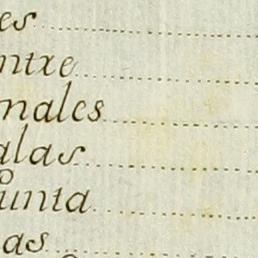 es
ntre
nales
alas
Punta
as